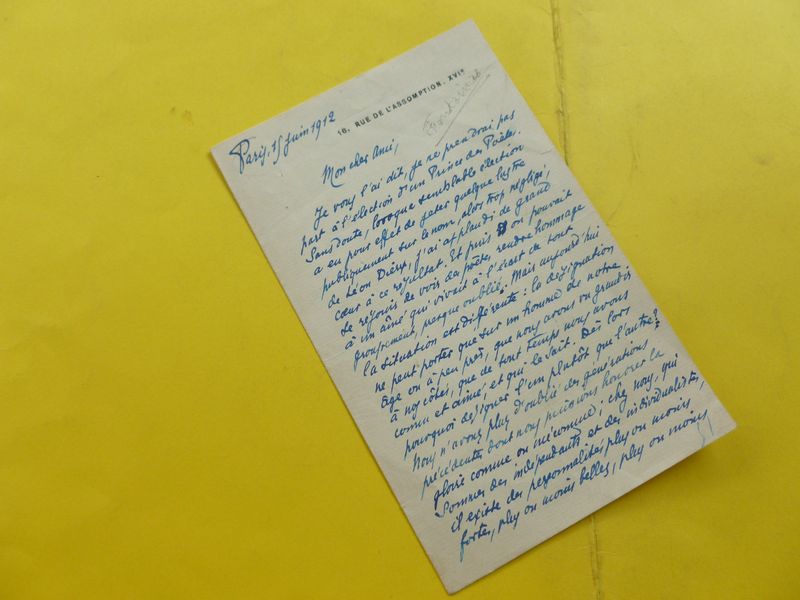 18, RUE DE L'ASSOMPTION, XVIe
Fontainas
Paris, 15 juin 1912
Mon cher Ami,
Je vous l'ai dit, je ne prendrai pas
part à l'élection d'un Prince des Poètes.
Sans doute, lorsque semblable élection
a eu pour effet de jeter quelque lustre
publiquement sur le nom, alors trop négligé,
de Léon Dierx, j'ai applaudi de grand
cœur à ce résultat. Et puis on pouvait
se réjouir de voir des poètes rendre hommage
à un aîné qui vivait à l'écart de tout
groupement, presque oublié. Mais aujourd'hui
la situation est différente : la désignation
ne peut porter que sur un homme de notre
âge ou à peu près, que nous avons vu grandir
à nos côtés, que de tout temps nous avons
connu et aimé, et qui le sait. Dès lors
pourquoi désigner l'un plutôt que l'autre ?
Nous n'avons plus d'oublié des générations
précédentes dont nous puissions honorer la
gloire comme on méconnue : chez nous, qui
sommes des indépendants et des individualistes,
il existe des personnalités plus ou moins
fortes, plus ou moins belles, plus ou moins